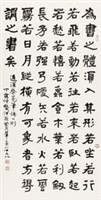 為書之體須入其形若坐若行
若飛若動若往若來若臥若起
若愁若喜若蟲食木葉若利劍長
戈若強弓硬矢若水火若雲霧
若日月縱橫有可象者方得
謂之書矣